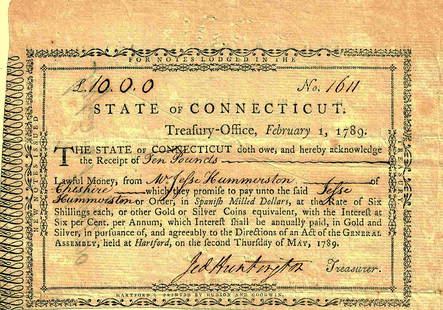 FOR NOTES LODGED IN THE
£10.0.0 No. 1611
STATE OF CONNECTICUT.
Treasury-Office, February 1, 1789.
THE STATE OF CONNECTICUT doth owe, and hereby acknowledge
the Receipt of Ten Pounds
Lawful Money, from Mr Jesse Hummerston of
Cheshire which they promise to pay unto the said Jesse
Hummerston or Order, in Spanish Milled Dollars, at the Rate of Six
Shillings each, or other Gold or Silver Coins equivalent, with the Interest at
Six per Cent. per Annum, which Interest shall be annually paid, in Gold and
Silver, in pursuance of, and agreeably to the Directions of an Act of the GENERAL
ASSEMBLY, held at Hartford, on the second Thursday of MAY, 1789.
Jed Huntington Treasurer.
HARTFORD: PRINTED BY HUDSON AND GOODWIN.
NEW NOTES ISSUED
TREASURY